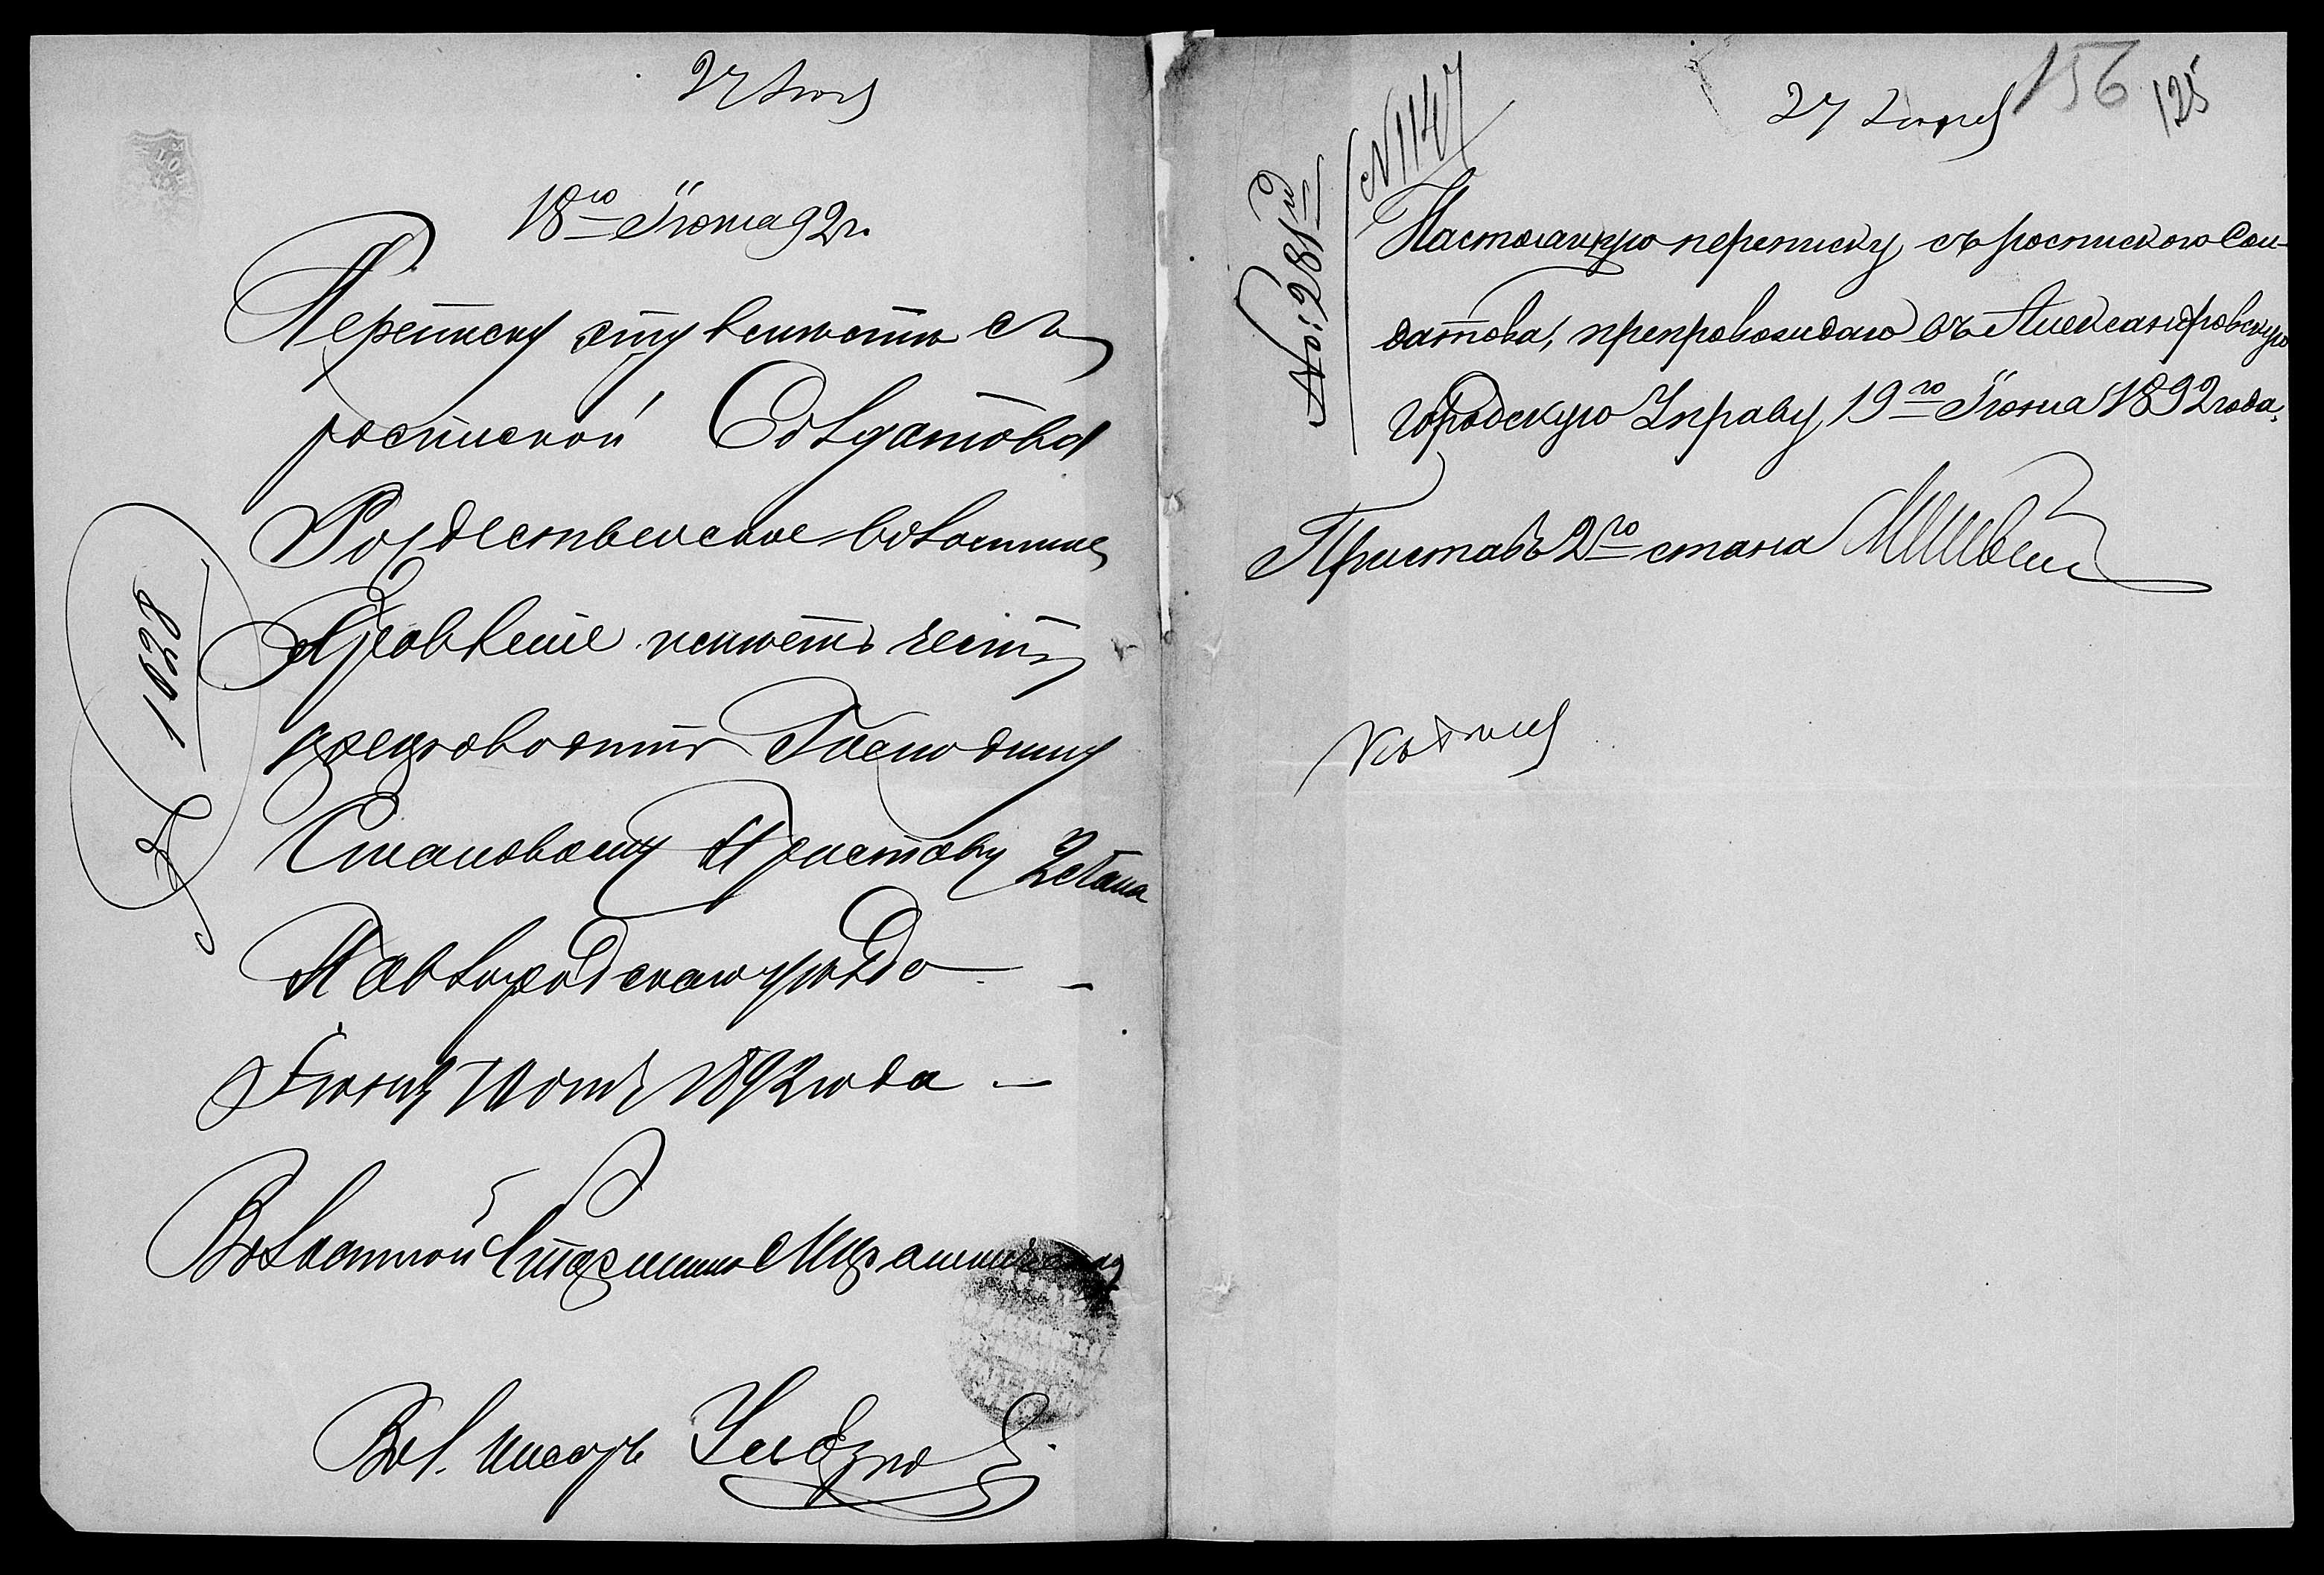 27 Іюня
18го Іюня 92 г.
Переписку эту вмѣстѣ съ
роспиской Солдатова
Рождественское волостное
Правленіе имѣетъ честь
препроводить Господину
Становому Приставу 2 стана
Павлоградскаго уѣзда
Іюня 10 дня 1892 года
Волостной Старшина
Вол. писарь
№ 1628
27 Іюня 156 125
№ 1147
№ 2818
Настоящую переписку съ роспискою Сол-
датова, препровождаю въ Александровскую
Городскую Управу, 19го Іюня 1892 года.
Приставъ 2го стана
Къ дѣлу